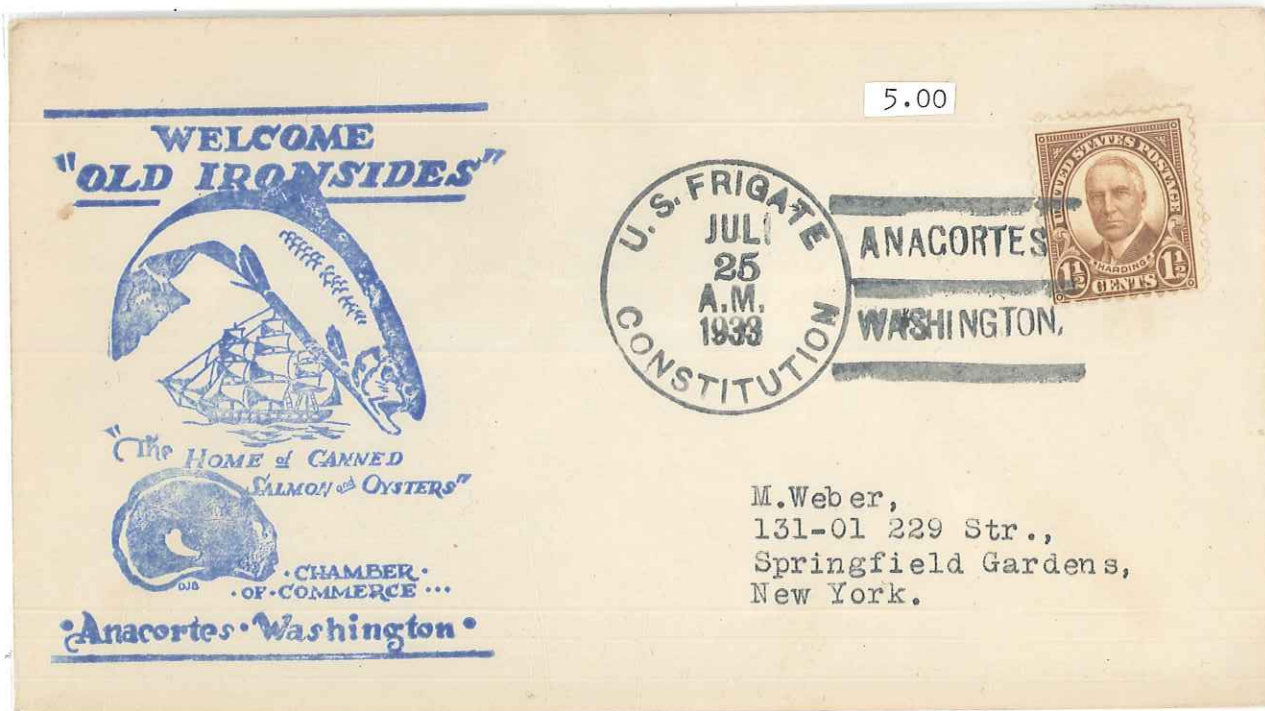 WELCOME
"OLD IRONSIDES"
"The HOME of CANNED
SALMON and OYSTERS"
OJB
·CHAMBER·
·OF·COMMERCE···
·Anacortes·Washington·
5.00
U.S. FRIGATE
JUL
25
A.M.
1933
CONSTITUTION
ANACORTES
WASHINGTON,
UNITED STATES POSTAGE
HARDING
1½ CENTS 1½
M.Weber,
131-01 229 Str.,
Springfield Gardens,
New York.